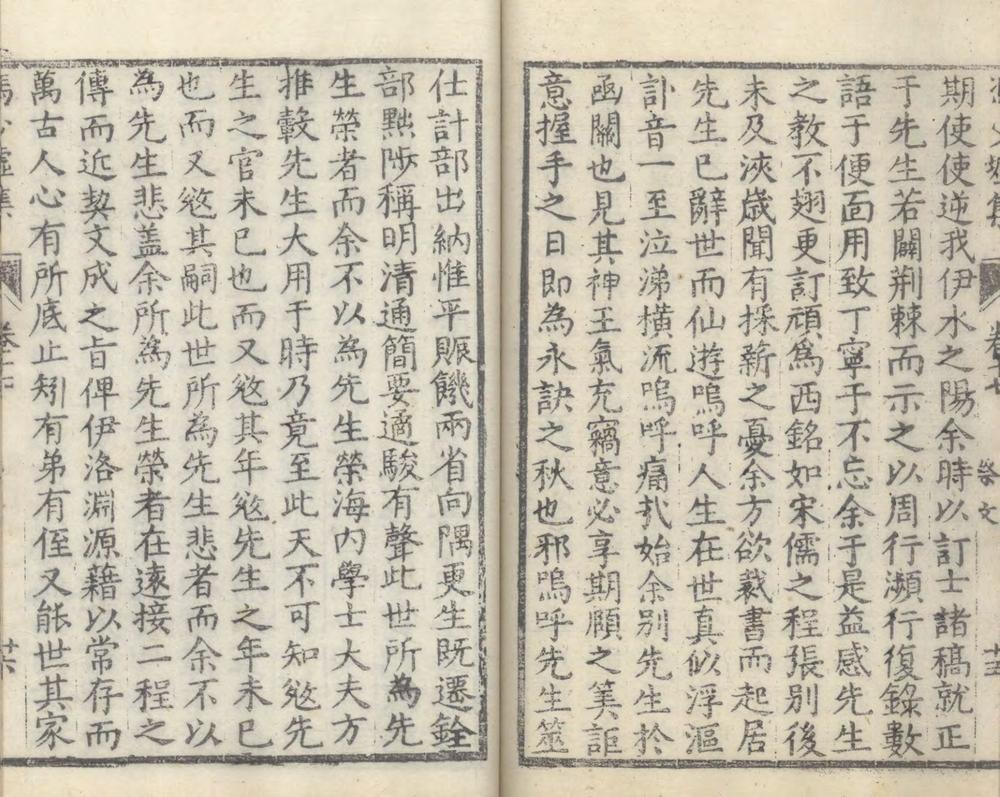 卷十七
祭文
十五
期使使逆我伊水之陽余時以訂士諸稿就正
于先生若闢荆棘而示之以周行瀕行復錄數
語于便面用致丁寧于不忘余于是益感先生
之教不翅更訂頑爲西銘如宋儒之程張別後
未及浹歲聞有採薪之憂余方欲裁書而起居
先生已辭世而仙遊嗚呼人生在世真似浮漚
訃音一至泣涕橫流嗚呼痛㢤始余別先生於
函關也見其神王氣充竊意必享期頤之筭詎
意握手之日即為永訣之秋也邪嗚呼先生筮
仕計部出納惟平賑饑兩省向隅更生既遷銓
部黜陟稱明清通簡要適駿有聲此世所為先
生榮者而余不以為先生榮海內學士大夫方
推轂先生大用于時乃竟至此天不可知慾先
生之官未已也而又慾其年慾先生之年未已
也而又慾其嗣此世所為先生悲者而余不以
為先生悲盖余所為先生榮者在遠接二程之
傳而近契文成之旨俾伊洛淵源藉以常存而
萬古人心有所底止矧有弟有侄又能世其家
馮少墟集
卷十七
十六